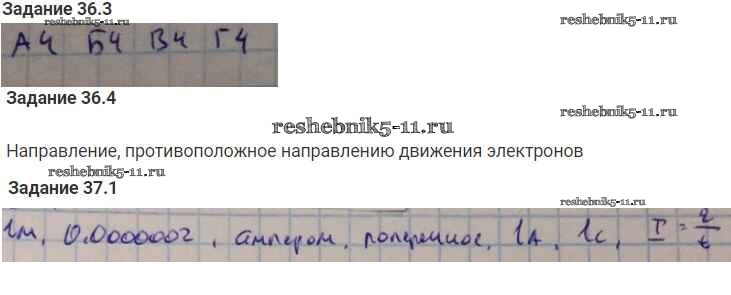 Задание 36.3
reshebnik5-11.ru
reshebnik5-11.ru
А4 Б4 В4 Г4
Задание 36.4
reshebnik5-11.ru
reshebnik5-11.ru
Направление, противоположное направлению движения электронов
Задание 37.1
reshebnik5-11.ru
1м, 0.0000002, ампером, 1А, 1с, I = q/t